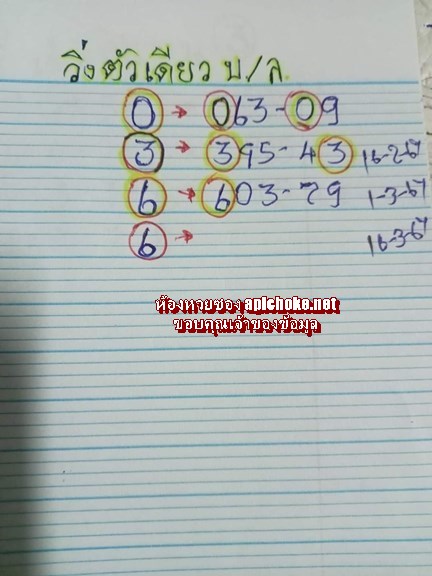 วิ่งตัวเดียว บ/ล
0 → 063-09
3 → 395-43 16-2-67
6 → 603-79 1-3-67
6 → 16-3-67
ห้องหวยซอง apichoke.net
ขอบคุณเจ้าของข้อมูล